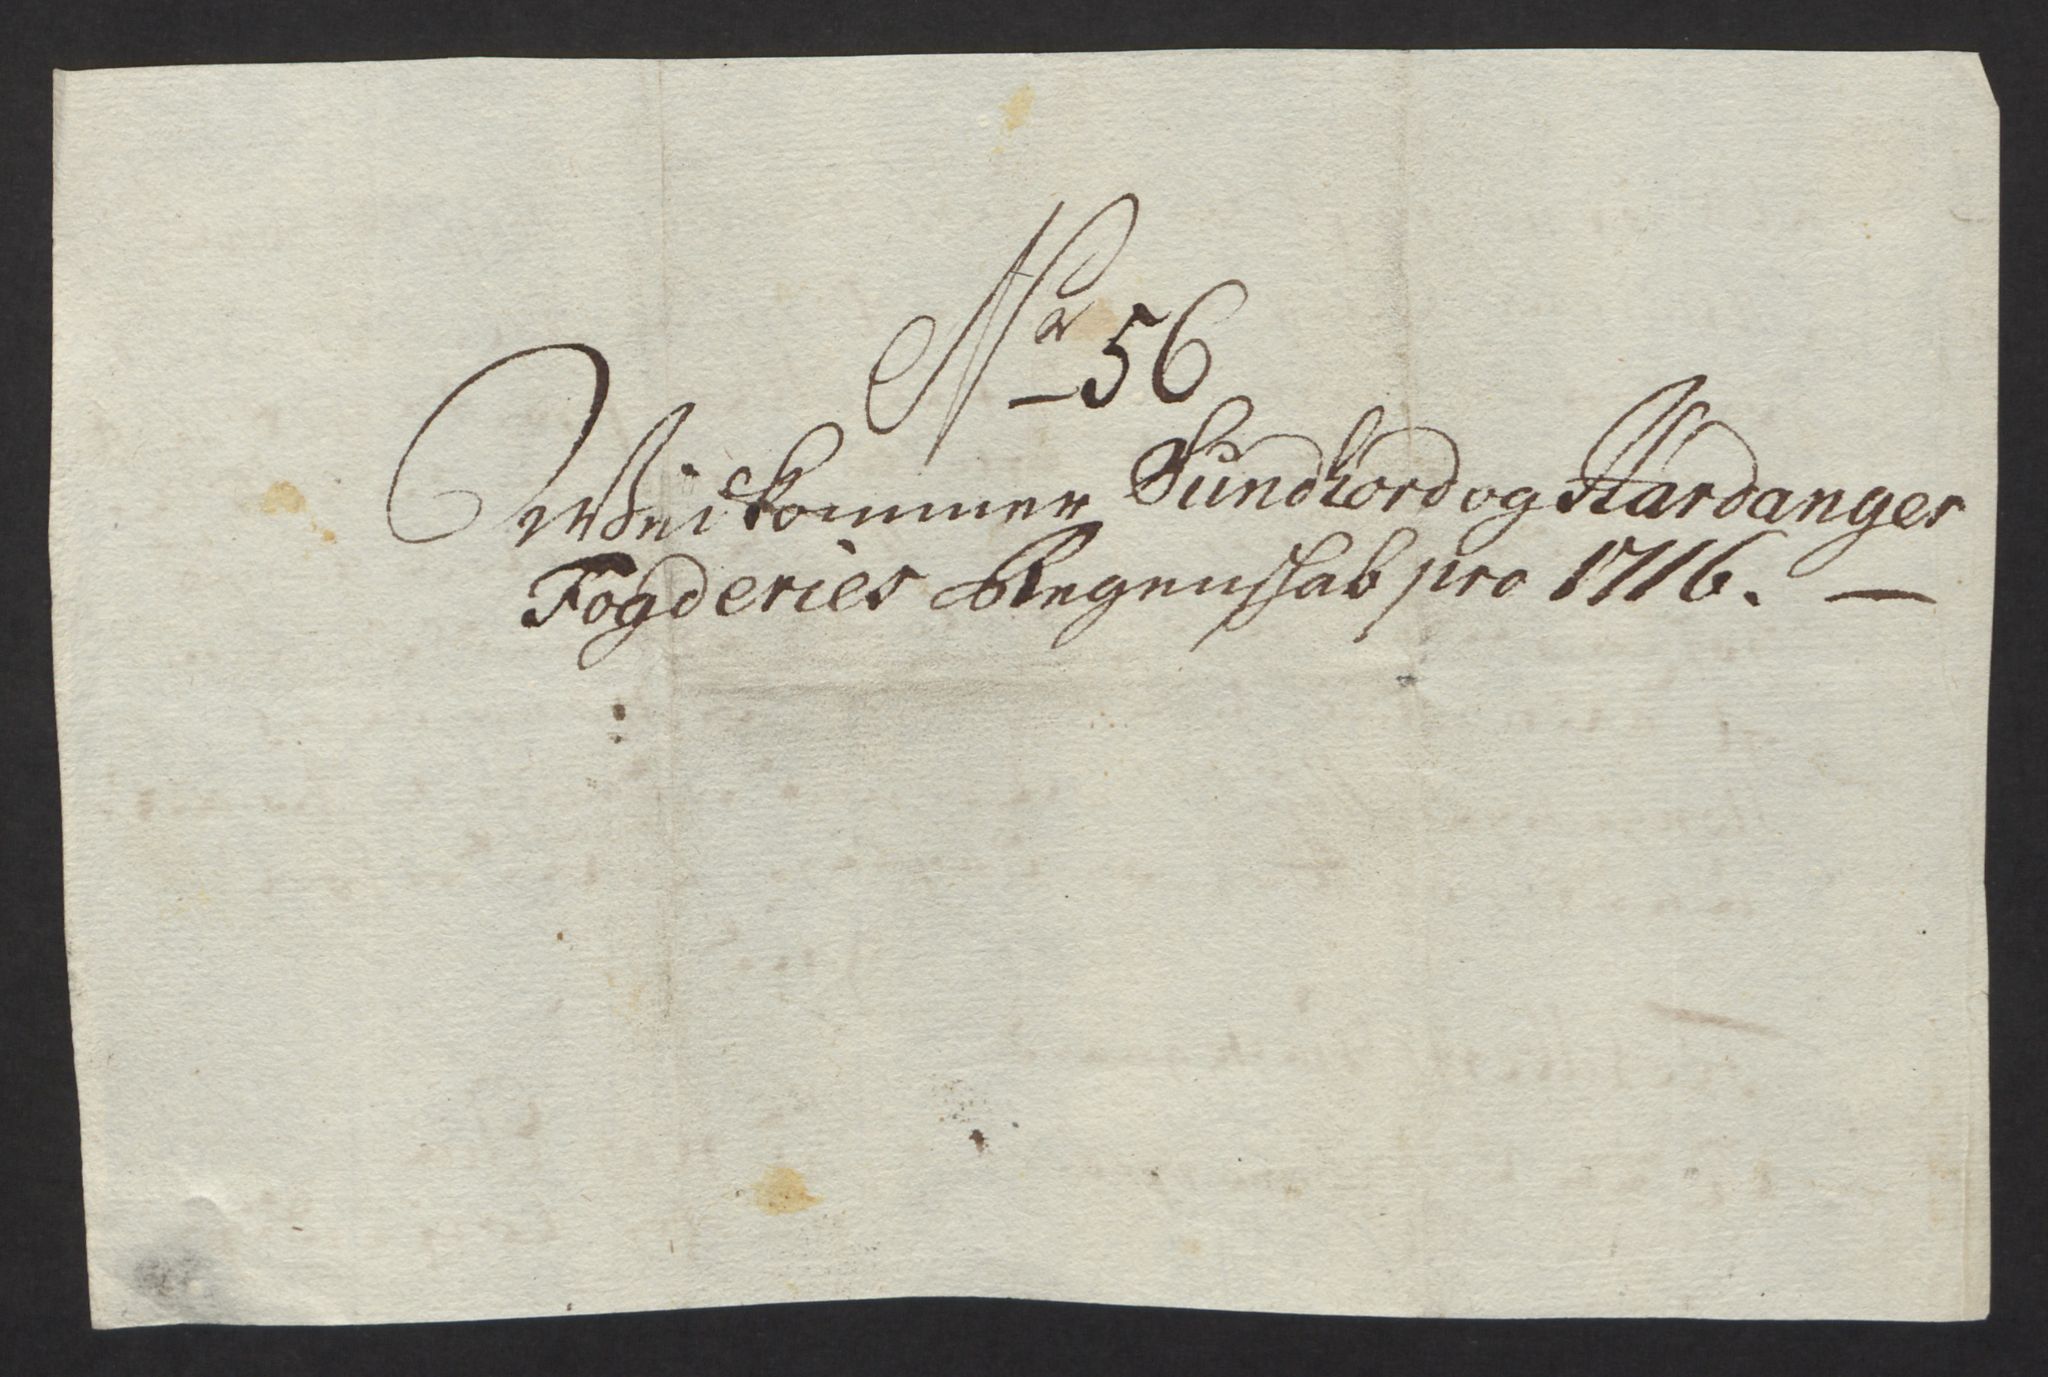 Nr 56
Wedkommer Sundhord og Hardanger
Fogderies Regenskab pro 1716. —